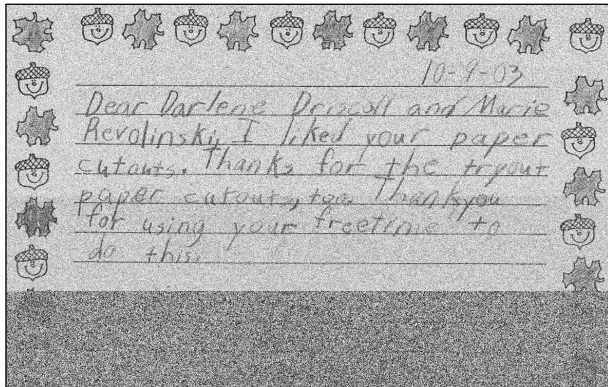 10-9-03
Dear Darlene Driscoll and Marie
Revolinski, I liked your paper
cutouts. Thanks for the tryout
paper cutouts, too. Thankyou
for using your freetime to
do this.